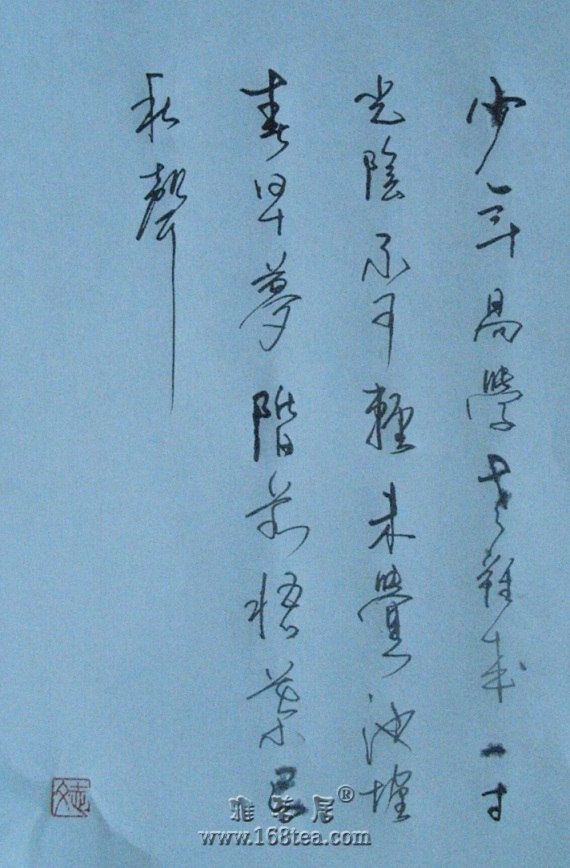 少年易學老難成一寸
光陰不可輕未覺池塘
春草夢階前梧葉已
秋聲
雅茗居®
www.168tea.com